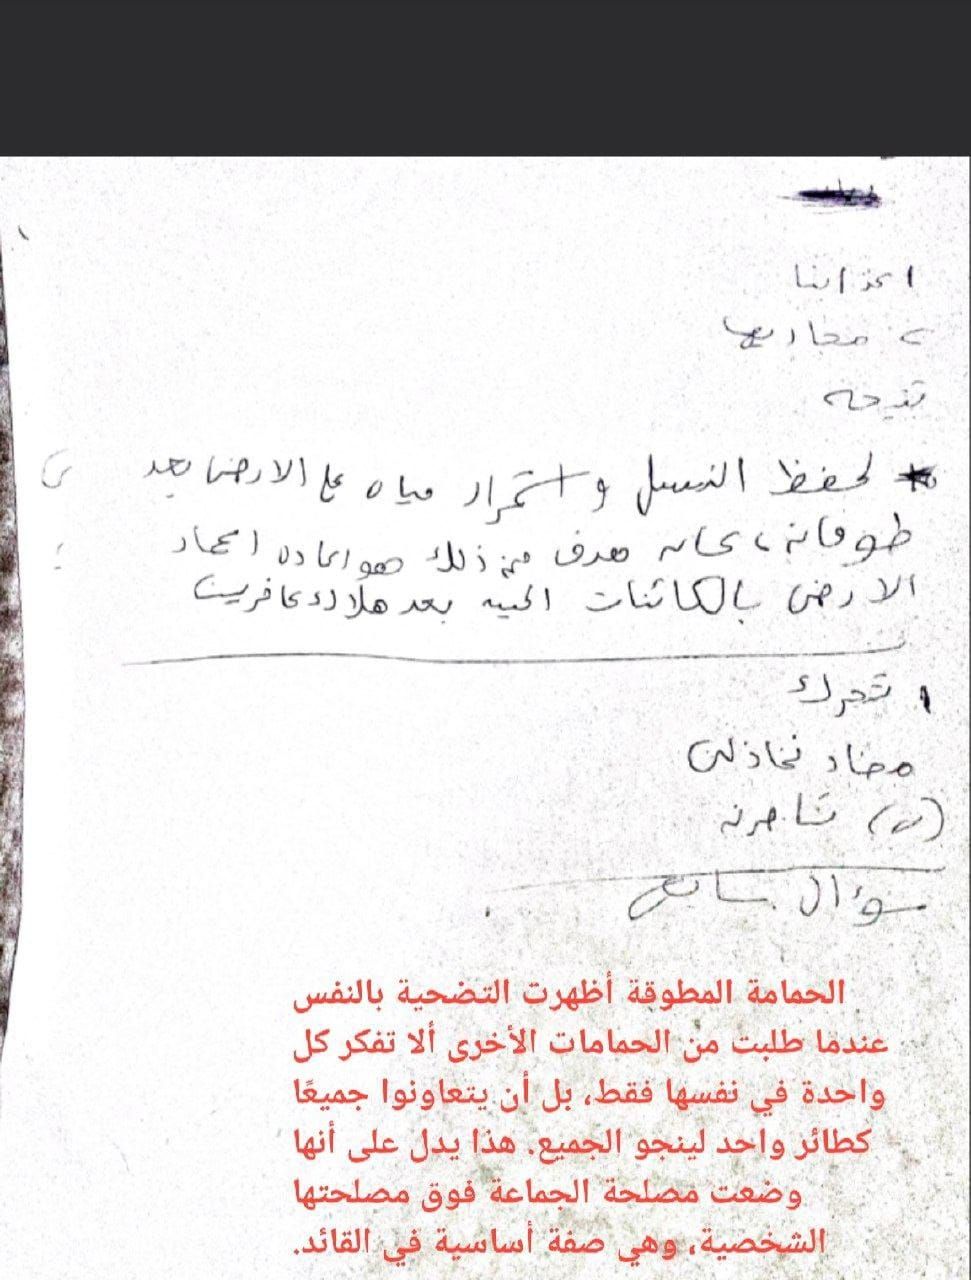 لحفظ النسل و استمرار حياه على الارض بعد
طوفان، كان هدف من ذلك هو اعاده اعمار
الارض بالكائنات الحيه بعد هلاك كافرين
تحرك
مضاد تخاذلن
سؤال سابع
الحمامة المطوقة أظهرت التضحية بالنفس
عندما طلبت من الحمامات الأخرى ألا تفكر كل
واحدة في نفسها فقط، بل أن يتعاونوا جميعًا
كطائر واحد لينجو الجميع. هذا يدل على أنها
وضعت مصلحة الجماعة فوق مصلحتها
الشخصية، وهي صفة أساسية في القائد.